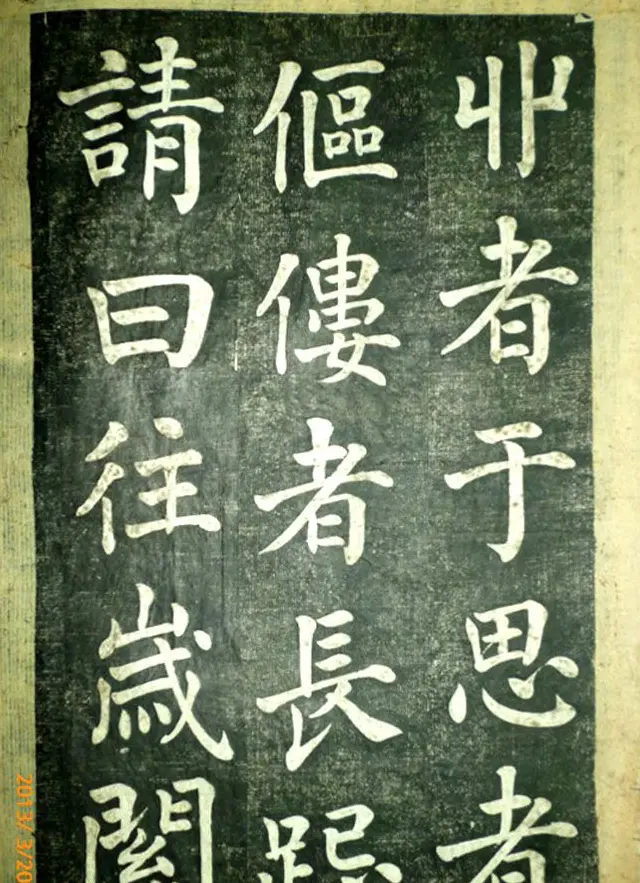 丱者于思者
傴僂者長跽
請曰往歲
2013/3/20